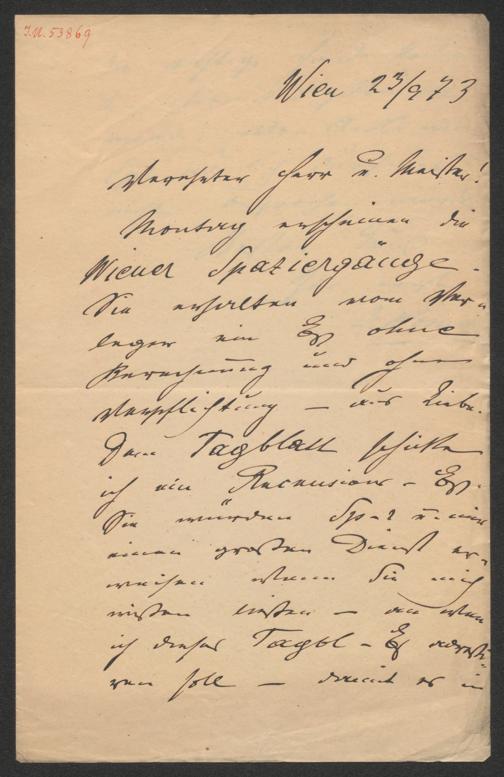 I.N. 53869
Wien 23/9 73
Verehrter Herr u. Meister!
Montag erscheinen die
Wiener Spaziergänge.
Sie erhalten vom Ver-
leger ein Ex ohne
Berechnung und ohne
Verpflichtung – aus Liebe.
Dem Tagblatt schicke
ich ein Recensions-Ex.
Sie würden Sp-r u. mir
einen großen Dienst er-
weisen wenn Sie mich
wissen ließen – an wen
ich dieses Tagbl-Ex adressi-
ren soll – damit es in